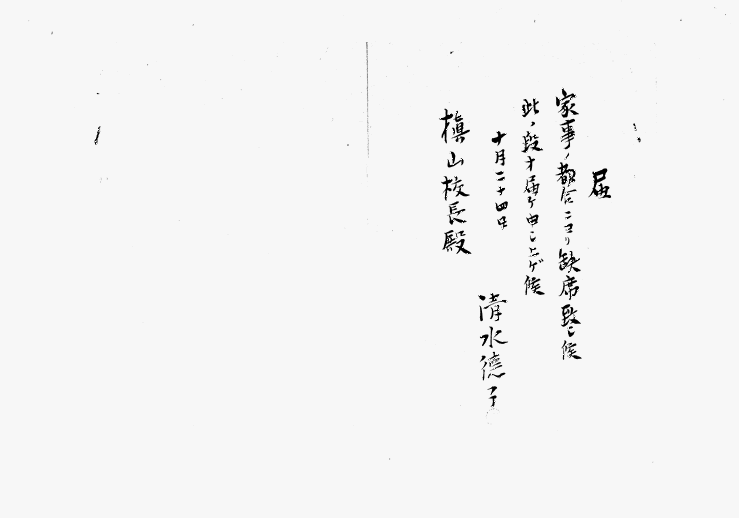 届
家事ノ都合ニヨリ缺席致シ候
此ノ段オ届ケ申シ上ゲ候
十月二十四日
清水德子
槇山校長殿